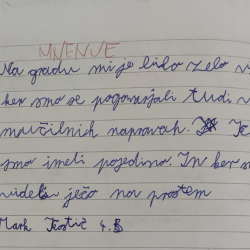 MNENJE
Na gradu mi je bilo zelo v
ker smo se pogovarjali tudi
mučilnih napravah.
smo imeli pojedino. In ker s
videli ječo na prostem
Mark 4. B